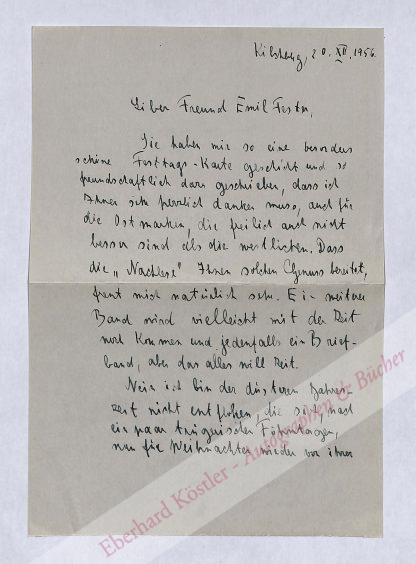 Kilchberg, 20. XII. 1956.
Lieber Freund Emil Fester,
Sie haben mir so eine besonders
schöne Festtags-Karte geschickt und so
freundschaftlich dazu geschrieben, dass ich
Ihnen sehr herzlich danken muss, auch für
die Ostmarken, die freilich auch nicht
besser sind als die westlichen. Dass
die „Nachlese" Ihnen solchen Genuss bereitet,
freut mich natürlich sehr. Ein weiterer
Band wird vielleicht mit der Zeit
noch kommen und jedenfalls ein Brief-
band, aber das alles will Zeit.
Nein ich bin der düsteren Jahres-
zeit nicht entflohen, die sich nach
ein paar trügerischen Föhntagen,
nun für Weihnachten wieder von ihrer
Eberhard Köstler - Autographen & Bücher